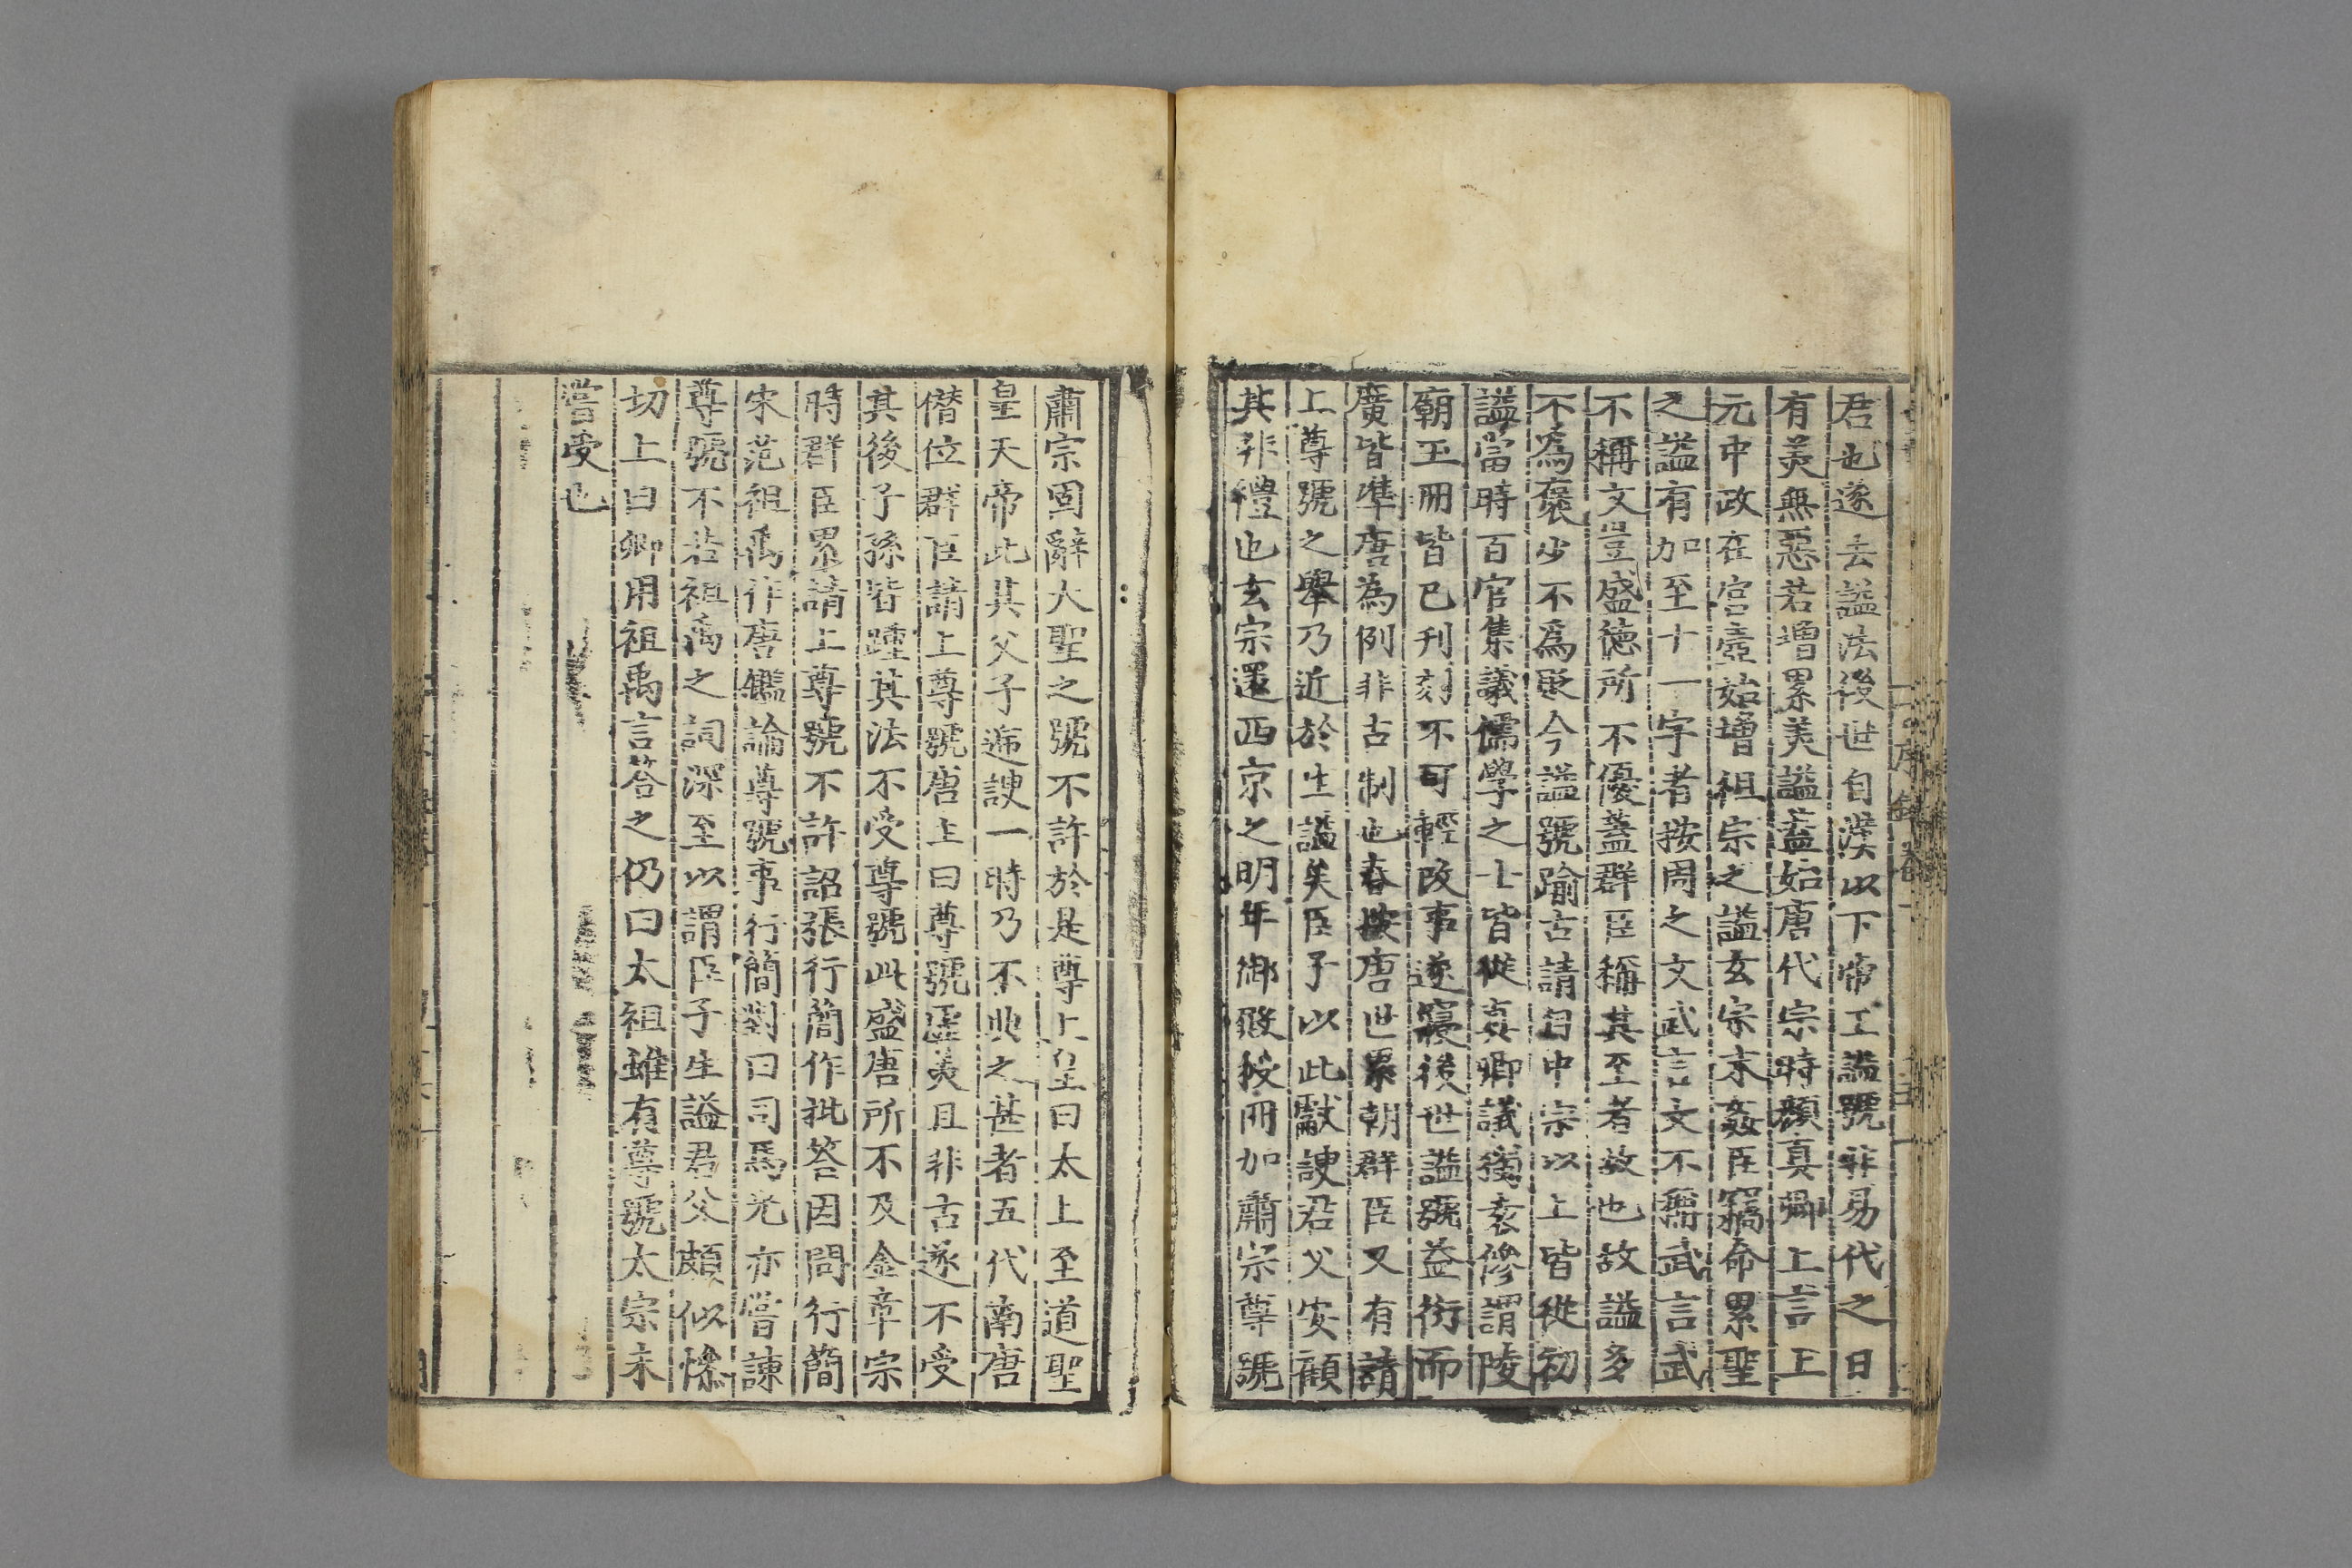 君也遂去謚法後世自漢以下帝王謚號非易代之日
有美無惡若增累美謚盖始唐代宗時顔真卿上言上
元中政在宫壼始增祖宗之謚玄宗末姦臣竊命累聖
之謚有加至十一字者按周之文武言文不稱武言武
不稱文豈盛徳所不優蓋群臣稱其至者故也故謚多
不爲褒少不爲貶今謚號踰古請自中宗以上皆從初
謚當時百官集議儒學之士皆從真卿議獨袁傪謂陵
廟玉冊皆已刊刻不可輕改事遂寢後世謚號益衍而
廣皆準唐為例非古制也春按唐世累朝群臣又有請
上尊號之舉乃近於生謚矣臣子以此獻諛君父安顧
其非禮也玄宗還西京之明年御殿授冊加肅宗尊號
肅宗固辭大聖之號不許於是尊上皇曰太上至道聖
皇天帝此其父子遞諛一時乃不典之甚者五代南唐
僭位群臣請上尊號唐主曰尊號虚美且非古遂不受
其後子孫皆踵其法不受尊號此盛唐所不及金章宗
時群臣累請上尊號不許詔張行簡作批答因問行簡
宋范祖禹作唐鑑論尊號事行簡對曰司馬光亦嘗諫
尊號不若祖禹之詞深至以謂臣子生謚君父頗似慘
切上曰卿用祖禹言荅之仍曰太祖雖有尊號太宗未
嘗受也